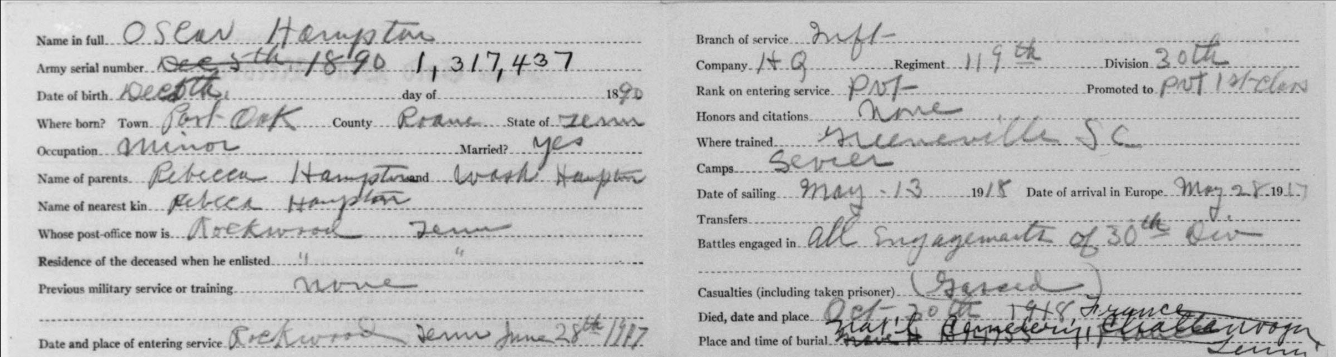 Name in full Oscar Hampton
Army serial number Dec 5th 1890 1,317,437
Date of birth Dec 5th, day of 1890
Where born? Town Post Oak County Roane State of Tenn
Occupation Minor Married? yes
Name of parents Rebecca Hampton and Wash Hampton
Name of nearest kin Rebeca Hampton
Whose post-office now is Rockwood Tenn
Residence of the deceased when he enlisted " "
Previous military service or training none
Date and place of entering service Rockwood Tenn June 28th 1917
Branch of service Inft-
Company HQ Regiment 119th Division 30th
Rank on entering service Pvt- Promoted to Pvt 1st-Class
Honors and citations None
Where trained Greeneville SC
Camps Sevier
Date of sailing May-13 1918 Date of arrival in Europe May 28 1917
Transfers
Battles engaged in all Engagements of 30th Div
Casualties (including taken prisoner) (Gassed)
Died, date and place Oct-20th 1918 France
Place and time of burial Nat'l Cemetery, Chattanooga
Tenn